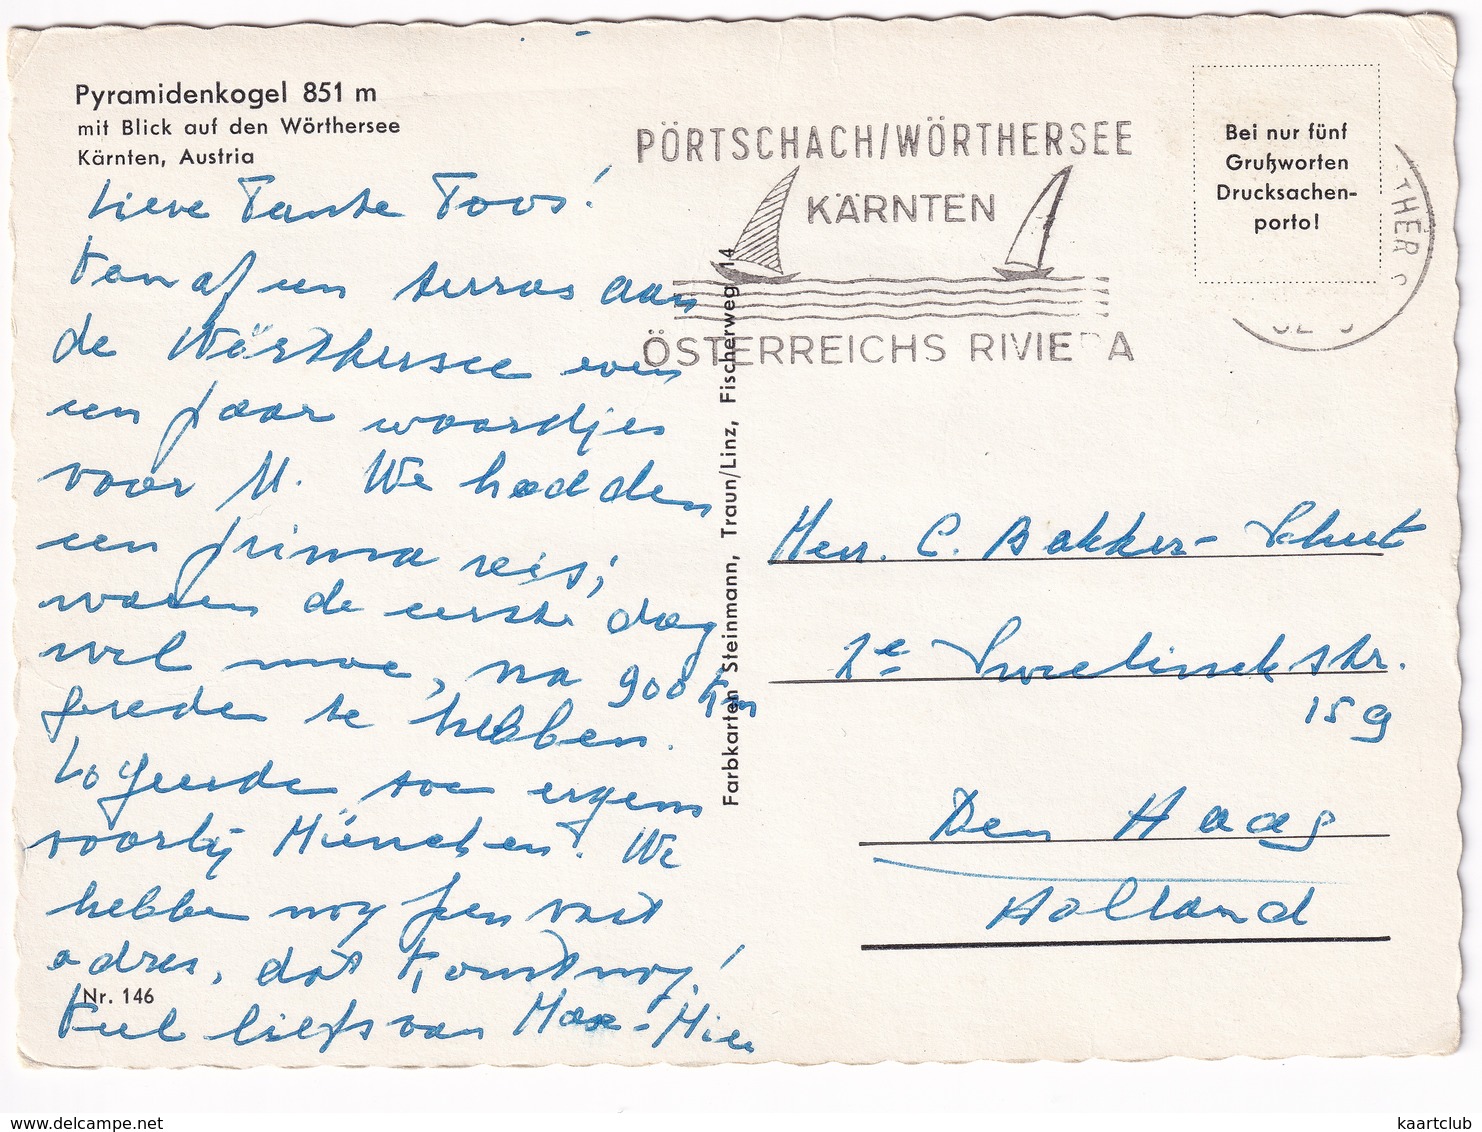 Pyramidenkogel 851 m
mit Blick auf den Wörthersee
Kärnten, Austria
Lieve Tante Toos!
Vanaf een terras aan
de Wörthersee even
een paar woordjes
voor U. We hadden
een prima reis,
waren de eerste dag
wel moe, na 900 km
gereden te hebben.
Logeerde toen ergens
voorbij München. We
hebben nog geen vast
adres, dat komt nog!
Veel liefs van Max-Mien
Nr. 146
Farbkarten Steinmann, Traun/Linz, Fischerweg 14
PÖRTSCHACH/WÖRTHERSEE
KÄRNTEN
ÖSTERREICHS RIVIE A
Bei nur fünf
Grußworten
Drucksachen-
porto!
THER
C. Bakker-Schut
2e Sweelinckstr.
159
Den Haag
Holland
kaartclub